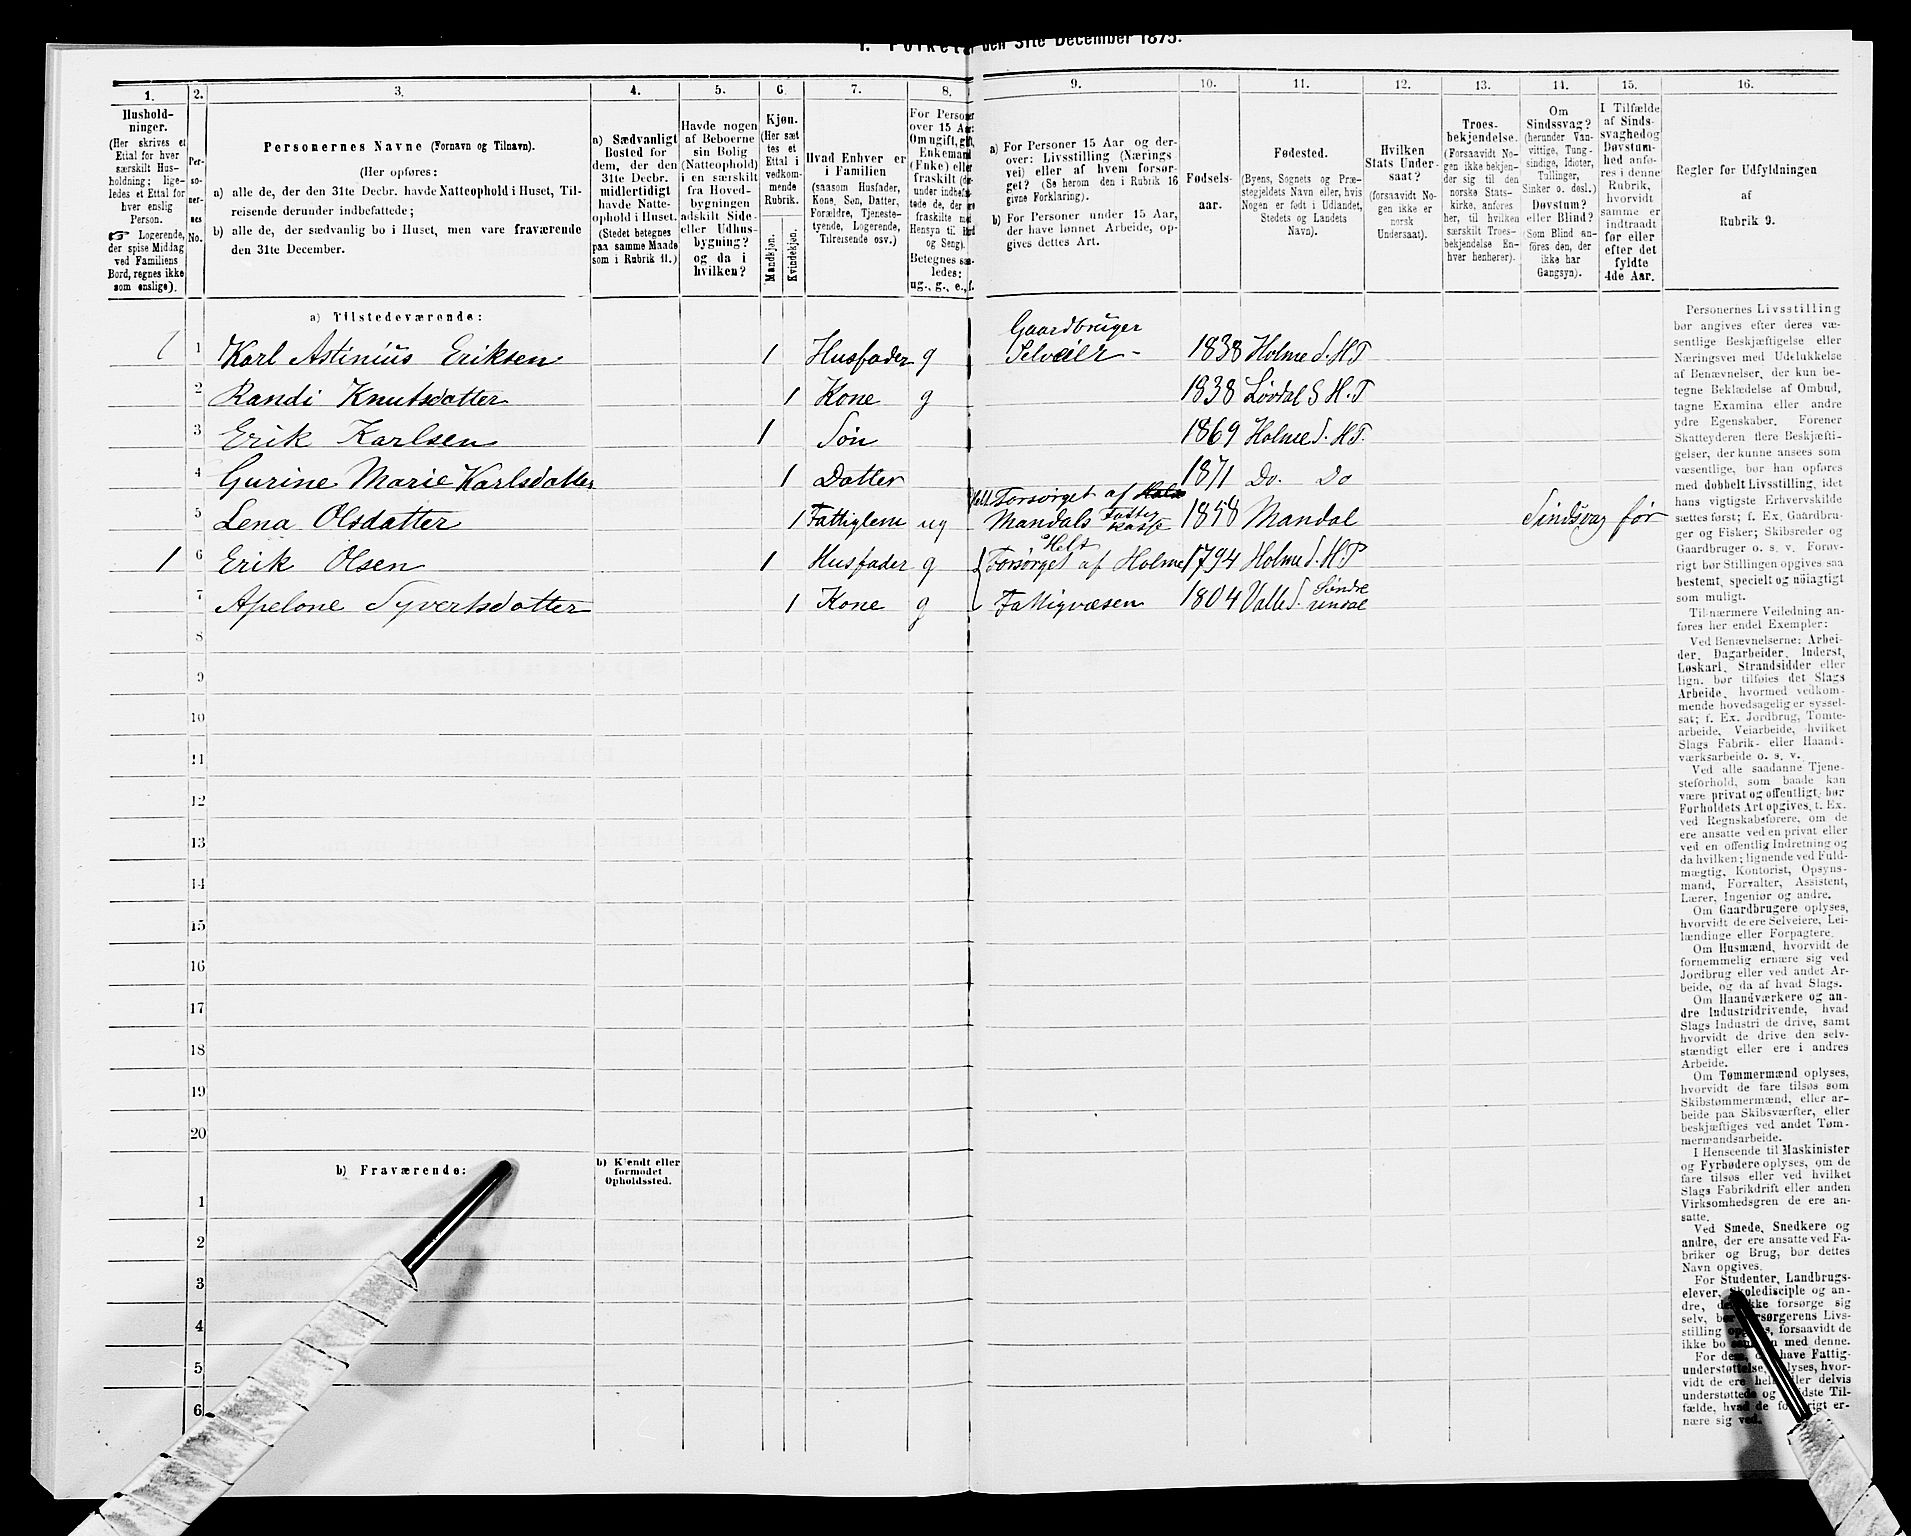 I. Folketal den 31te December 1875.
1. 2. 3. 4. 5. 6. 7. 8. 9. 10. 11. 12. 13. 14. 15. 16.
Hushold-
ninger.
(Her skrives et
Ettal for hver
særskilt Hus-
holdning; lige-
ledes et Ettal for
hver enslig
Person.
☞ Logerende,
der spise Middag
ved Familiens
Bord, regnes ikke
som enslige).
Per-
so-
ner-
nes
No.
Personernes Navne (Fornavn og Tilnavn).
(Her opføres:
a) alle de, der den 31te Decbr. havde Natteophold i Huset, Til-
reisende derunder indbefattede;
b) alle de, der sædvanlig bo i Huset, men vare fraværende
den 31te December.
a) Sædvanligt
Bosted for
dem, der den
31te Decbr.
midlertidigt
havde Natte-
ophold i Huset.
(Stedet betegnes
paa samme Maade
som i Rubrik 11.)
Havde nogen
af Beboerne
sin Bolig
(Natteophold)
i en særskilt
fra Hoved-
bygningen
adskilt Side-
eller Udhus-
bygning?
og da i
hvilken?
Kjøn.
(Her sæt
tes et
Ettal i
vedkom-
mende
Rubrik.
Mandkjøn.
Kvindekjøn.
Hvad Enhver er
i Familien
(saasom Husfader,
Kone, Søn, Datter,
Forældre, Tjeneste-
tyende, Logerende,
Tilreisende osv.)
For Personer
over 15 Aar:
Om ugift, gift,
Enkemand
(Enke) eller
fraskilt (der-
under indbefat-
tede de, der ere
fraskilte med
Hensyn til Bord
og Seng).
Betegnes saa-
ledes:
ug., g., e., f.
a) For Personer 15 Aar og der-
over: Livsstilling (Nærings
vei) eller af hvem forsør-
get? (Se herom den i Rubrik 16
givne Forklaring).
b) For Personer under 15 Aar,
der have lønnet Arbeide, op-
gives dettes Art.
Fødsels-
aar.
Fødested.
(Byens, Sognets og Præ-
stegjeldets Navn eller, hvis
Nogen er født i Udlandet,
Stedets og Landets
Navn).
Hvilken
Stats Under-
saat?
(forsaavidt No-
gen ikke er
norsk
Undersaat).
Troes-
bekjendelse.
(Forsaavidt No-
gen ikke bekjen-
der sig til den
norske Stats-
kirke, anføres
her, til hvilken
særskilt Troes-
bekjendelse En-
hver henhører).
Om
Sindssvag?
(herunder Van-
vittige, Tung-
sindige, Idioter,
Tullinger,
Sinker o. desl.)
Døvstum?
eller Blind?
(Som Blind an-
føres den, der
ikke har
Gangsyn).
I Tilfælde
af Sinds-
svaghedog
Døvstum-
hed anfø-
res i denne
Rubrik,
hvorvidt
samme er
indtraadt
før eller
efter det
fyldte
4de Aar.
Regler for Udfyldningen
af
Rubrik 9.
a) Tilstedeværende:
1 1 Karl Astinius Eriksen 1 Husfader g Gaardbruger
Selveier - 1838 Holme S. H P
2 Randi Knutsdatter 1 Kone g 1838 Løvdal S H. P
3 Erik Karlsen 1 Søn 1869 Holme S. H P.
4 Gurine Marie Karlsdatter 1 Datter 1871 Do. Do
5 Lena Olsdatter 1 Fattiglem ug Helt Forsørget af
Mandals Fatter
Kasse 1858 Mandal Sindsvag før
1 6 Erik Olsen 1 Husfader g Helt
Forsørget af Holme 1794 Holme S. H P
7 Apelone Syvertsdatter 1 Kone g Fattigvæsen 1804 Valle S. Søndre
undal
8
9
10
11
12
13
14
15
16
17
18
19
20
b) Fraværende:
b) Kjendt eller
formodet
Opholdssted.
1
2
3
4
5
6
Personernes Livsstilling
bør angives efter deres væ-
sentlige Beskjæftigelse eller
Næringsvei med Udelukkelse
af Benævnelser, der kun be-
tegne Beklædelse af Ombud,
tagne Examina eller andre
ydre Egenskaber. Forener
Skatteyderen flere Beskjæfti-
gelser, der kunne ansees som
væsentlige, bør han opføres
med dobbelt Livsstilling, idet
hans vigtigste Erhvervskilde
sættes først; f. Ex. Gaardbru-
ger og Fisker; Skibsreder og
Gaardbruger o. s. v. Forøv-
rigt bør Stillingen opgives saa
bestemt, specielt og nöiagtigt
som muligt.
Til nærmere Veiledning an-
føres her endel Exempler:
Ved Benævnelserne: Arbei-
der, Dagarbeider, Inderst,
Løskarl, Strandsidder eller
lign. bør tilføies det Slags
Arbeide, hvormed vedkom-
mende hovedsagelig er syssel-
sat; f. Ex. Jordbrug, Tomte-
arbeide, Veiarbeide, hvilket
Slags Fabrik- eller Haand-
værksarbeide o. s. v.
Ved alle saadanne Tjene-
steforhold, som baade kan
være privat og offentligt, bør
Forholdets Art opgives, t. Ex.
ved Regnskabsførere, om de
ere ansatte ved en privat eller
ved en offentlig Indretning og
da hvilken; lignende ved Fuld-
mægtig, Kontorist, Opsyns-
mand, Forvalter, Assistent,
Lærer, Ingeniør og andre.
Om Gaardbrugere oplyses,
hvorvidt de ere Selveiere, Lei-
lændinge eller Forpagtere.
Om Husmænd, hvorvidt de
fornemmelig ernære sig ved
Jordbrug eller ved andet Ar-
beide, og da af hvad Slags.
Om Haandværkere og an-
dre Industridrivende, hvad
Slags Industri de drive, samt
hvorvidt de drive den selv-
stændigt eller ere i andres
Arbeide.
Om Tømmermænd oplyses,
hvorvidt de fare tilsøs som
Skibstømmermænd, eller ar-
beide paa Skibsværfter, eller
beskjæftiges ved andet Tøm-
mermandsarbeide.
I Henseende til Maskinister
og Fyrbødere oplyses, om de
fare tilsøs eller ved hvilket
Slags Fabrikdrift eller anden
Virksomhedsgren de ere an-
satte.
Ved Smede, Snedkere og
andre, der ere ansatte ved Fa-
briker og Brug, bør dettes
Navn opgives.
For Studenter, Landbrugs-
elever, Skoledisciple og an-
dre, der ikke forsørge sig
selv, bør Forsørgerens Livs-
stilling opgives, forsaavidt de
ikke bo sammen med denne.
For dem, der have Fattig-
understøttelse, oplyses, hvor-
vidt de ere helt eller delvis
understøttede og i sidste Til-
fælde, hvad de forøvrigt er-
nære sig ved.